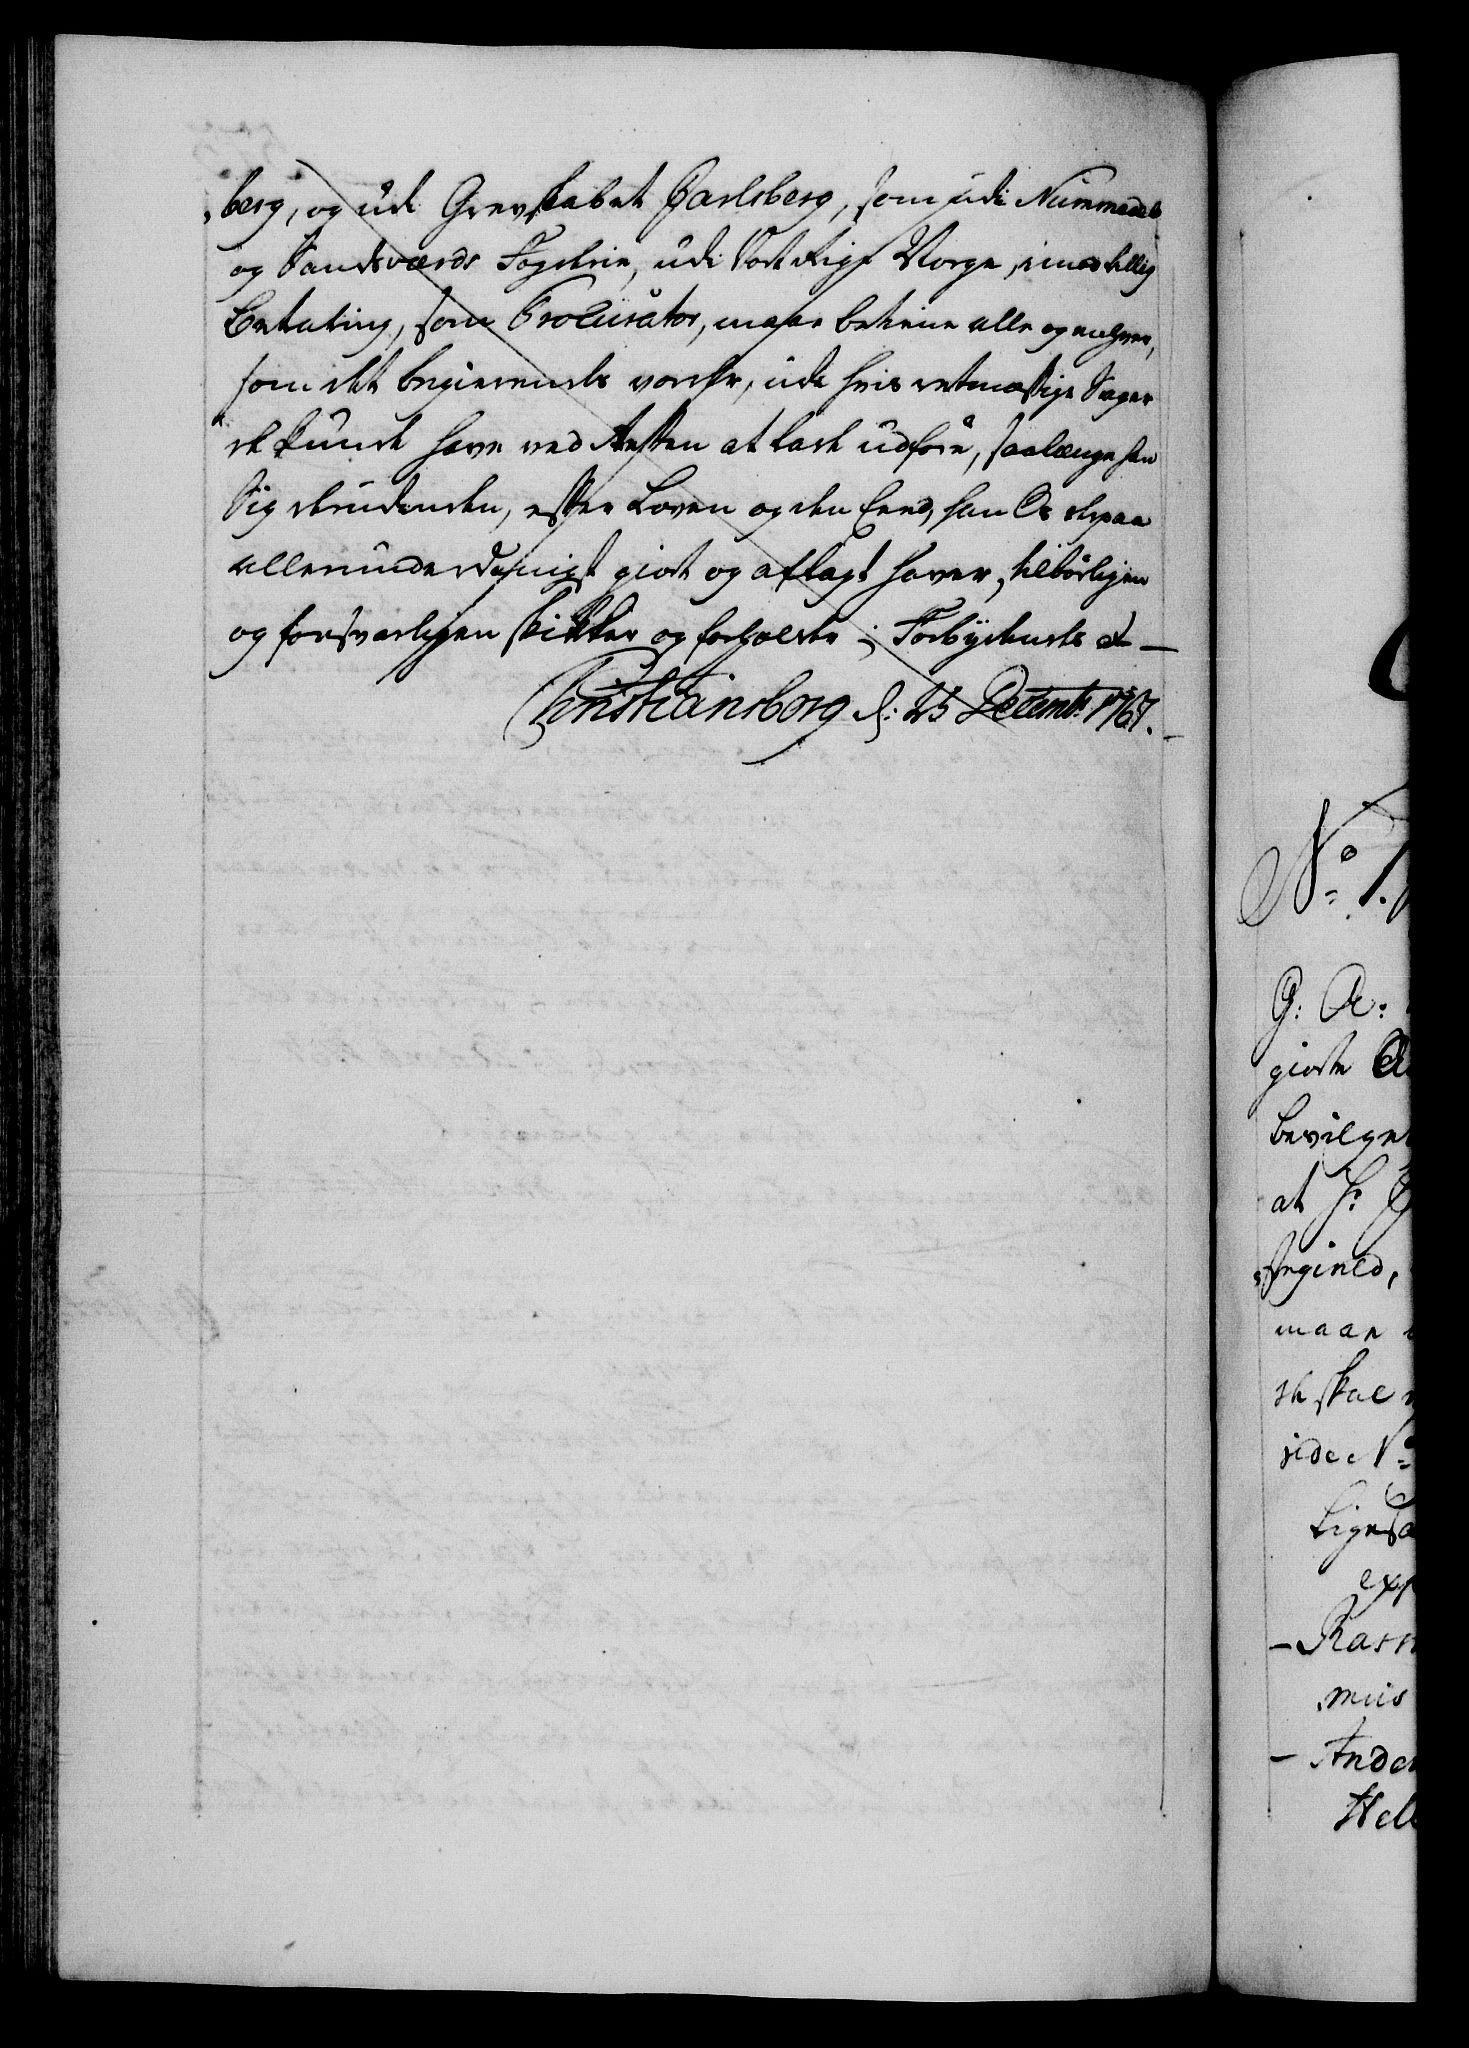 berg, og udi Grevskabet Jarlsberg, som udi Nummedals
og Sandsværds Fogderie, udi Vort Rige Norge, imod billig
Betaling, som Procurator, maae betiene alle og enhver,
som det begierende vorder, udi hvis retmæssige Sager
de kunde have ved Retten at lade udføre, saalænge han
Sig derudinden, efter Loven og den Eed, han Os derpaa
allerunderdanigst giort og aflagt haver, tilbørligen
og forsvarligen skikker og forholder; Forbydendes et
Christiansborg d: 23 Decembr: 1767.
No 1.
G: A:
giorde
Bevilget
at Hr
Regined,
maae
de skal
side No
Ligesaa
exp
- Rasm
mus
- Ander
Hell